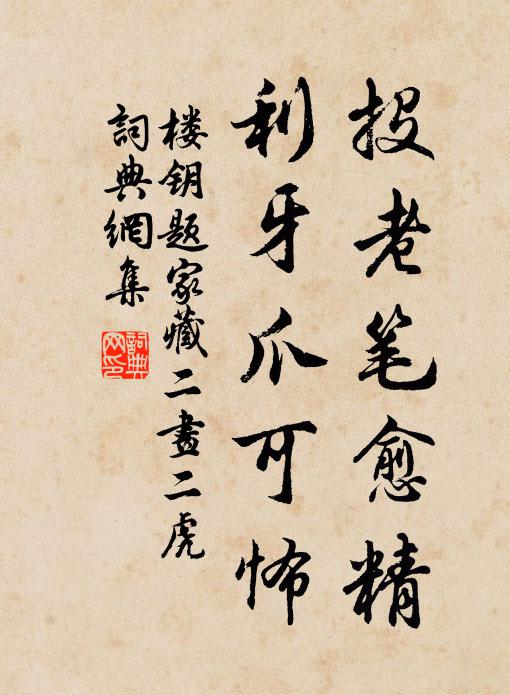 投老笔愈精
利牙爪可怖
楼钥题家藏二畫二虎
詞典網集
詞典网印